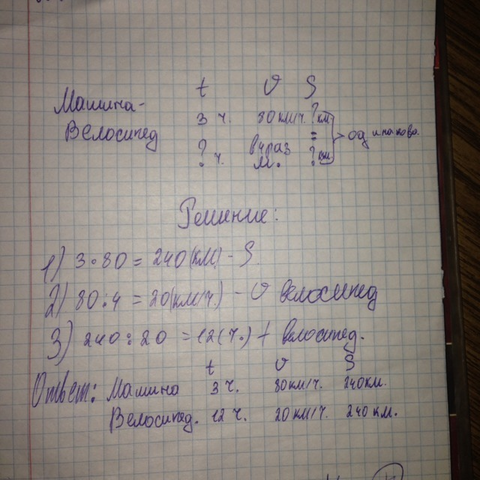 t V S
Машина- 3 ч. 80км/ч. ? км
Велосипед ? ч. в 4 раз м. = ? км одинаково.
Решение:
1) 3·80=240(км) - S.
2) 80:4=20(км/ч.) - V велосипед
3) 240:20=12(ч.) t велосипед.
t V S
Ответ: Машина 3 ч. 80км/ч. 240км.
Велосипед. 12 ч. 20 км/ч. 240 км.